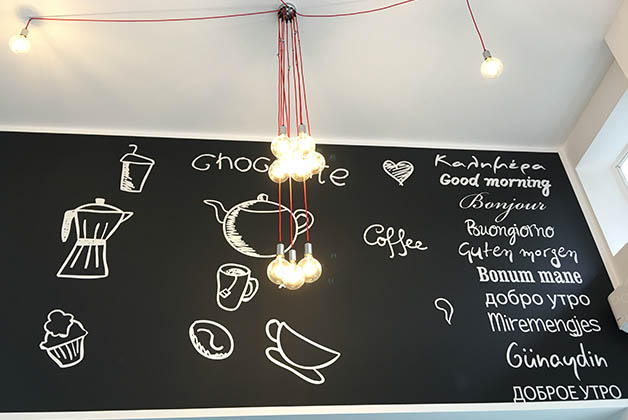 Chocolate
Coffee
Καλημέρα
Good morning
Bonjour
Buongiorno
Guten morgen
Bonum mane
добро утро
Miremengjes
Günaydin
ДОБРОЕ УТРО